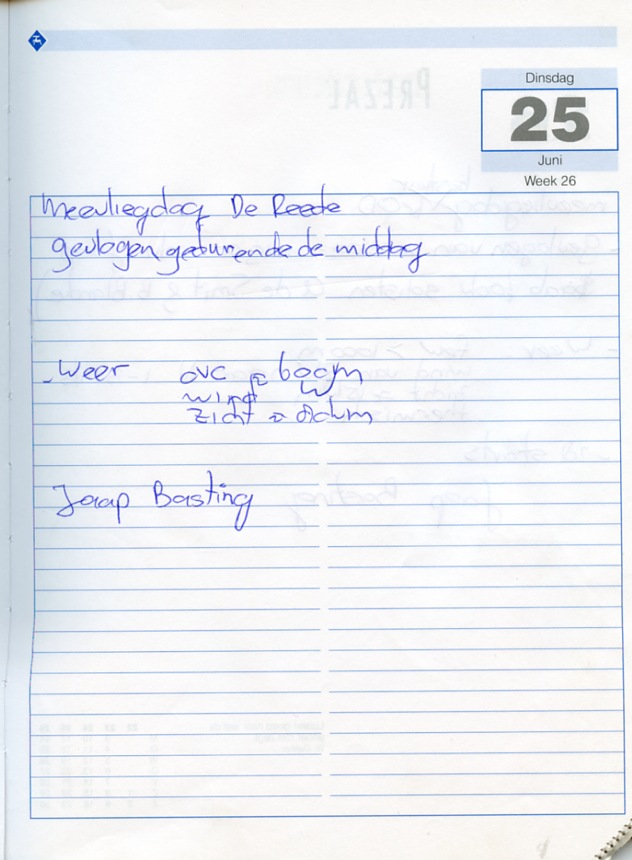 Dinsdag
25
Juni
Week 26
Meevliegdag De Reede
gevlogen gedurende de middag
- Weer ovc ± 600m
wind W
zicht ± 8km
Jaap Basting